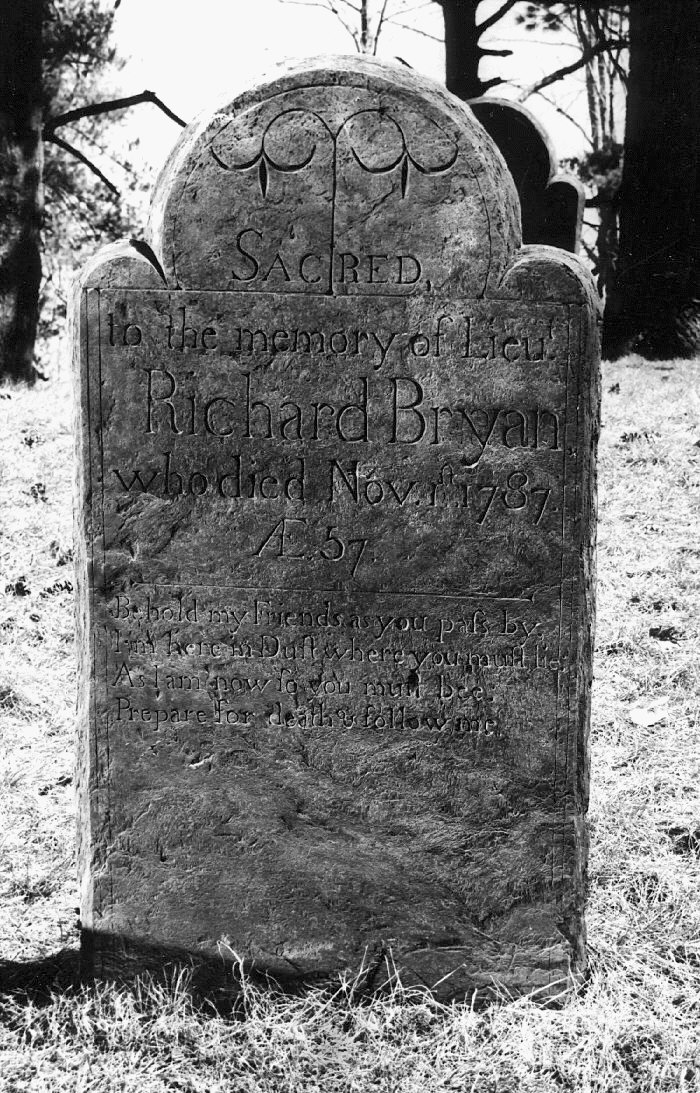 SACRED,
to the memory of Lieut.
Richard Bryan
who died Nov. 1ſt. 1787.
Æ. 57.
Behold my Friends as you paſs by,
I'm here in Duſt where you muſt lie,
As I am now ſo you muſt bee
Prepare for death & follow me